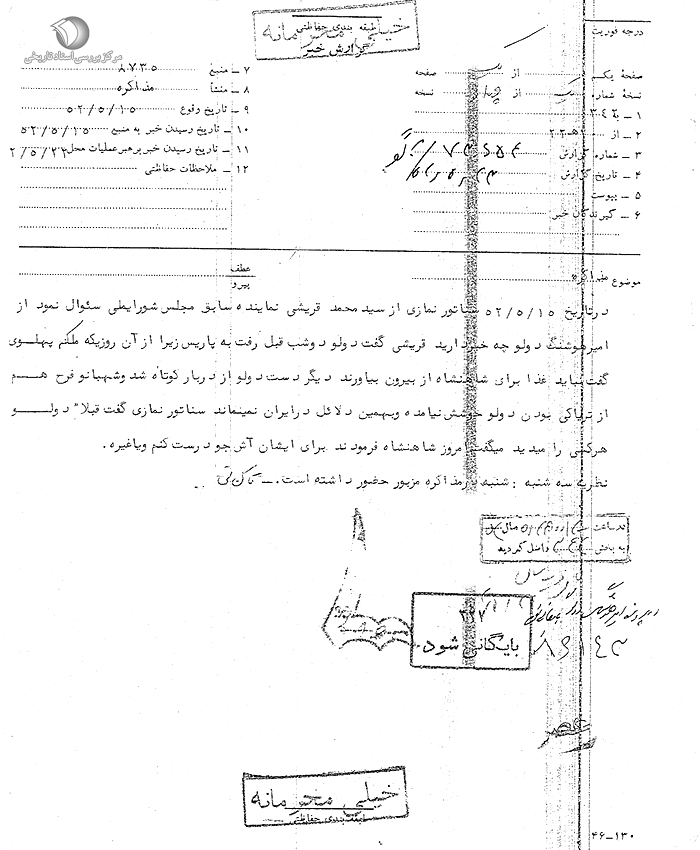 مرکز بررسی اسناد تاریخی
خیلی محرمانه
طبقه بندی حفاظتی
گزارش خبر
درجه فوریت
صفحه یک از صفحه
نسخه شماره از نسخه
۱ ـ به ۳۴۰
۲ ـ از ۲۰ هـ
۳ ـ شماره گزارش
۴ ـ تاریخ گزارش
۵ ـ پیوست
۶ ـ گیرندگان خبر
۷ ـ منبع ۸۷۳۵
۸ ـ منشأ مذاکره
۹ ـ تاریخ وقوع ۵۲/۵/۱۵
۱۰ ـ تاریخ رسیدن خبر به منبع ۵۲/۵/۱۵
۱۱ ـ تاریخ رسیدن خبر برهبر عملیات محل ۲/۵/۲۲
۱۲ ـ ملاحظات حفاظتی
موضوع مذاکره
عطف
پیرو
درتاریخ ۵۲/۵/۱۵ سناتور نمازی از سید محمد قریشی نماینده سابق مجلس شورا بطی سئوال نمود از
امیرهوشنگ دولو چه خبر دارید قریشی گفت دولو دوشب قبل رفت به پاریس زیرا از آن روزیکه ملکم پهلوی
گفت نباید غذا برای شاهنشاه از بیرون بیاورند دیگر دست دولو از دربار کوتاه شد وشهبانو فرح هم
از تریاکی بودن دولو خوشش نیامده وبهمین دلائل در ایران نمیماند سناتور نمازی گفت قبلا" دولو
هرکسی را میدید میگفت امروز شاهنشاه فرمودند برای ایشان آش جو درست کنم وباغیره.
نظریه سه شنبه : شنبه در مذاکره مزبور حضور داشته است.ـ
در ساعت روز
به بخش واصل گردید
۳۲۷
بایگانی شود.
۸۶۱۴۳
خیلی محرمانه
طبقه بندی حفاظتی
۴۶-۱۳۰